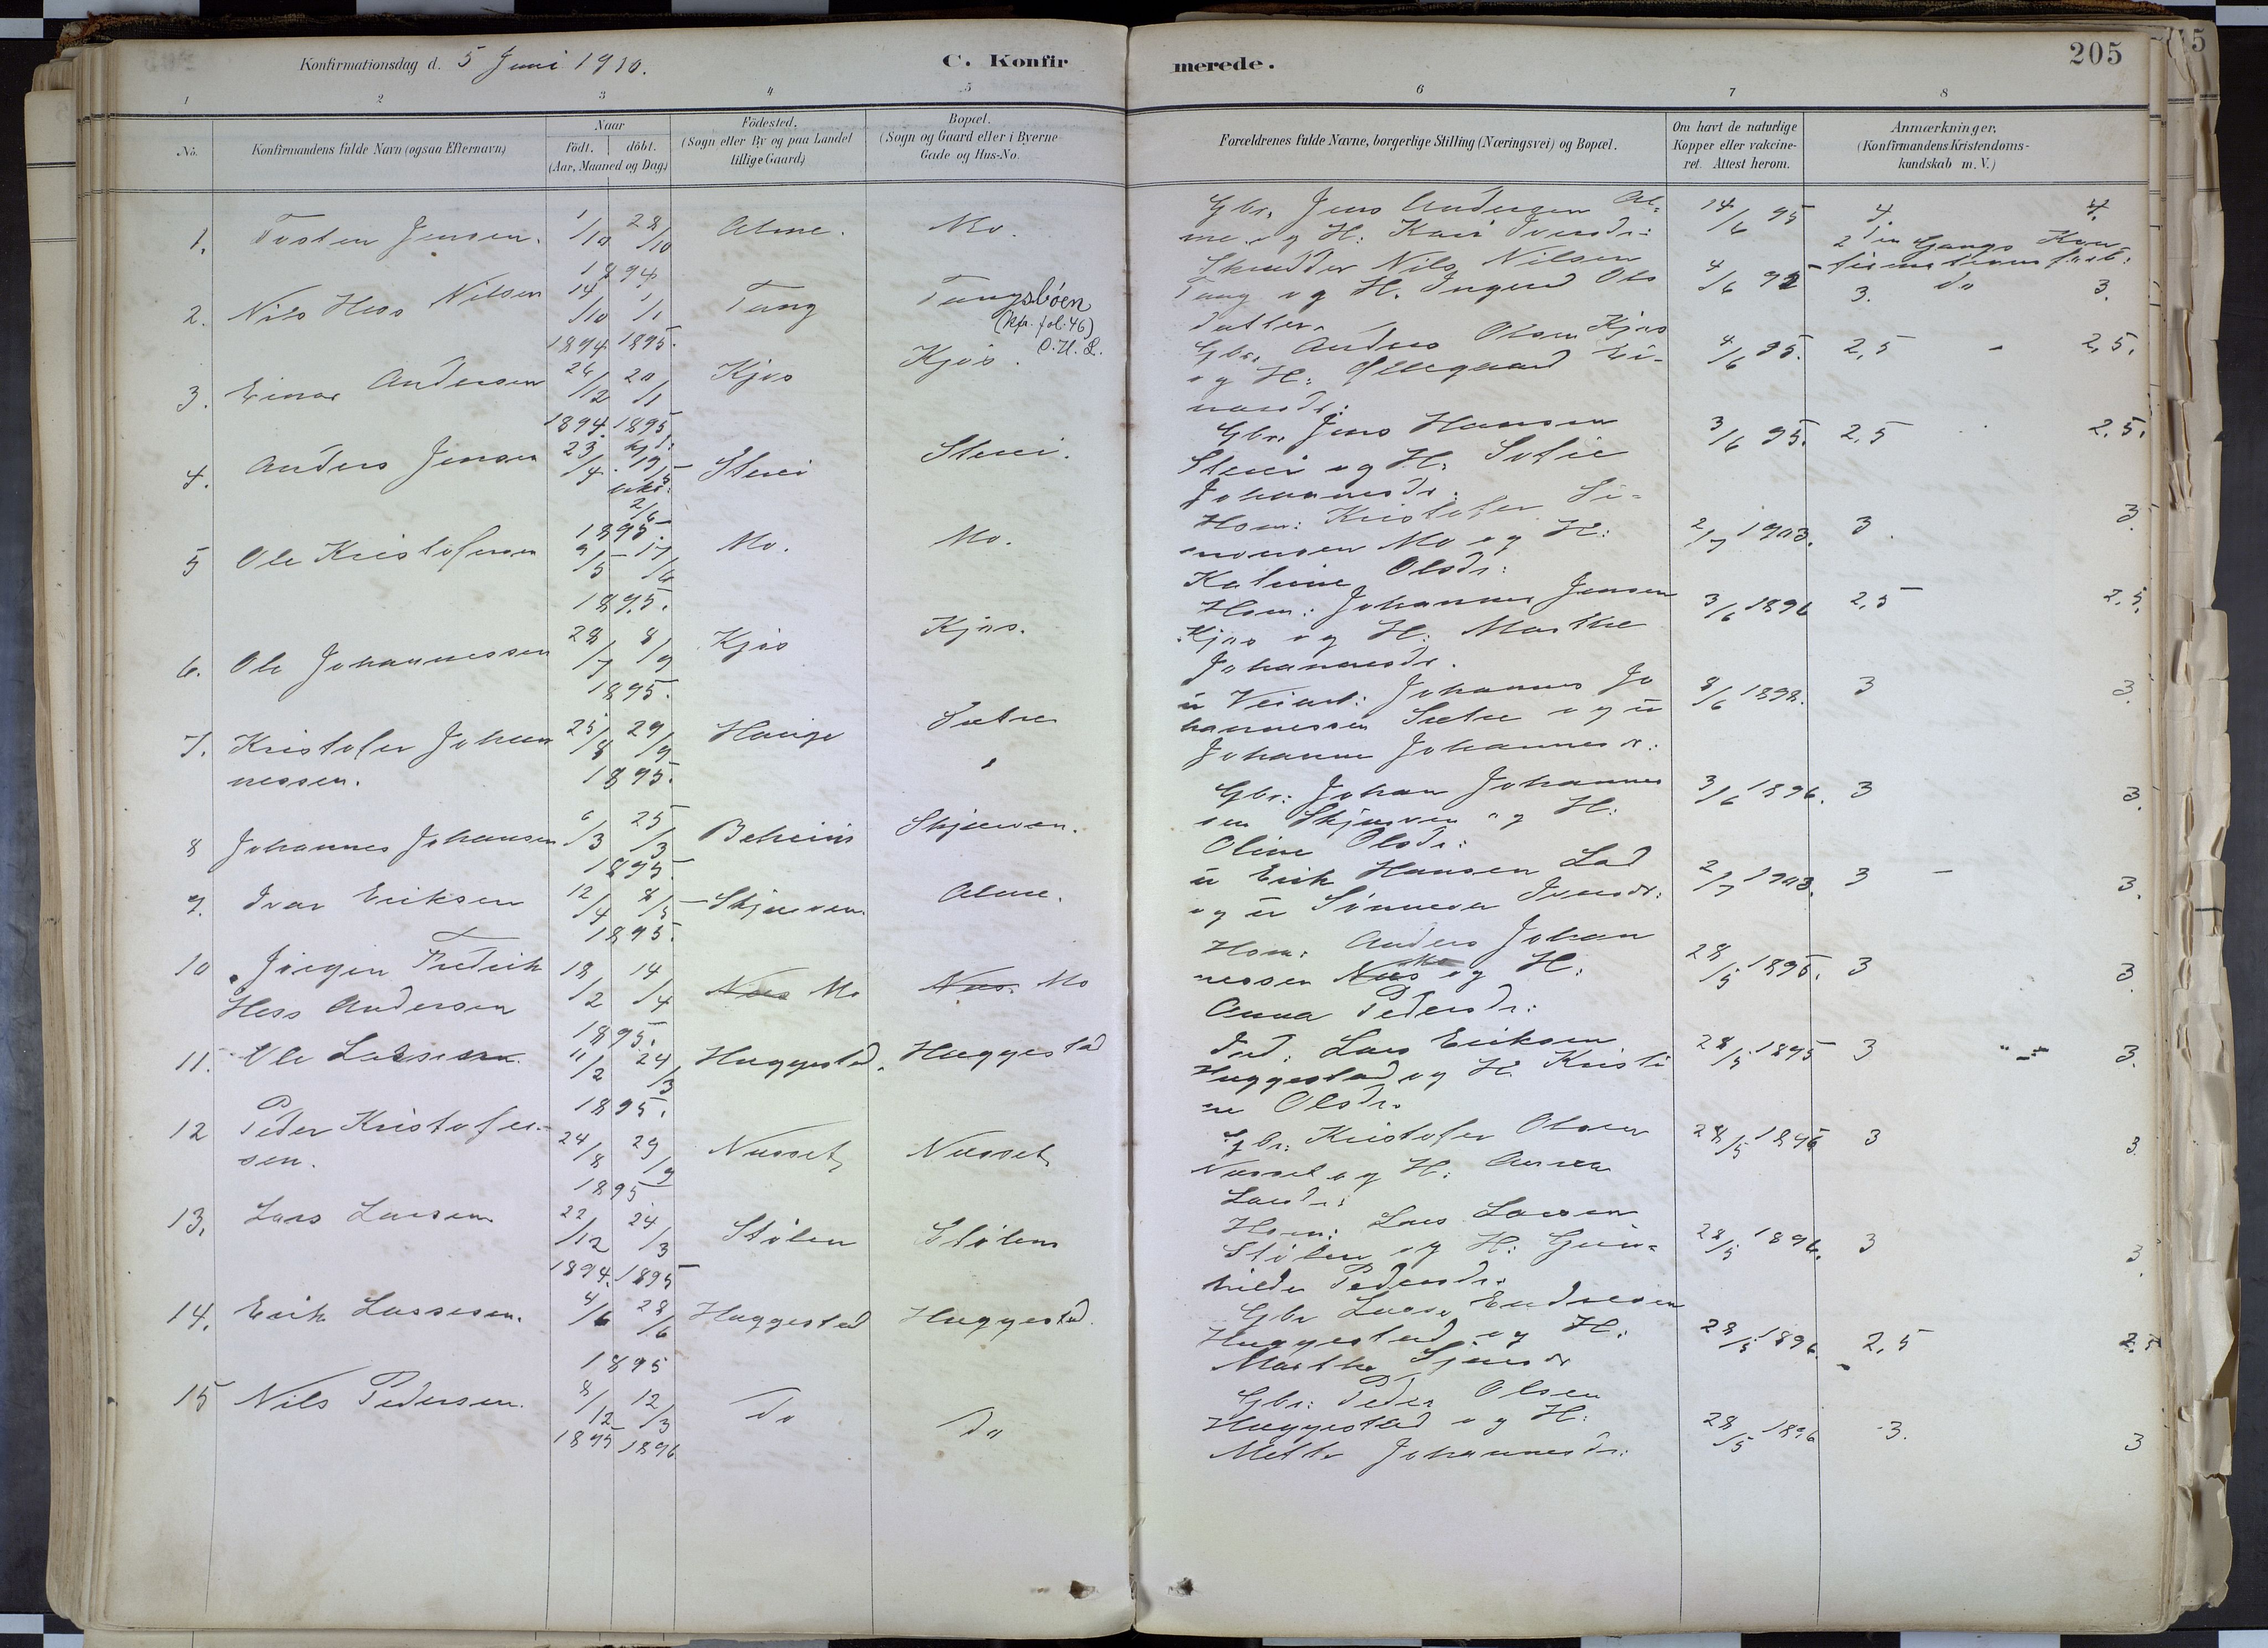 Konfirmationsdag d. 5 Juni 1910.
C. Konfirmerede.
205
1 2 3 4 5 6 7 8
No.
Konfirmandens fulde Navn (ogsaa Efternavn)
Naar
födt. döbt.
(Aar, Maaned og Dag)
Födested.
(Sogn eller By og paa Landet
tillige Gaard)
Bopæl.
(Sogn og Gaard eller i Byerne
Gade og Hus-No.
Forældrenes fulde Navne, borgerlige Stilling (Næringsvei) og Bopæl.
Om havt de naturlige
Kopper eller vakcine-
ret. Attest herom.
Anmærkninger.
(Konfirmandens Kristendoms-
kundskab m. V.)
1. Tosten Jensen. 1/10 28/10 1894 Alme. Mo.
Gbr. Jens Andersen Al-
me. og H: Kari Iversdr: 14/6 95 4. 4.
2den Gangs Kon-
firmations forb:
2. Nils Hess Nilsen 14/10 1894 1/1 1895. Tung Tungsböen
(kfr. fol. 46)
O. H. L.
Skrædder Nils Nilsen
Tung og H. Ingerid Ols
datter. 4/6 95 3. do 3.
3. Einar Andersen 26/12 1894. 20/1 1895 Kjos Kjos.
Gbr. Anders Olsen Kjos
og H: Ellegaard Ei-
narsdr: 4/6 95. 2,5 - 2,5.
4. Anders Jensen 23/4 hjd: 19/5 kirk: 2/6 1895 Sterei Sterei.
Gbr. Jens Hansen
Sterei og H. Sofie
Johannesdr. 3/6 95. 2,5 2.5.
5 Ole Kristofersen 9/5 - 17/6 1895. Mo. Mo.
Hsm: Kristofer Si-
monsen Mo og H:
Katrine Olsdr: 2/7 1903. 3. 3
6. Ole Johannessen 28/7 8/9 1895. Kjos Kjos.
Hsm: Johannes Jensen
Kjos og H: Marthe
Johannesdr. 3/6 1896 2,5 2,5.
7. Kristofer Johan
nessen. 25/8 29/9 1895. Hauge Sætre
u Veiarb: Johannes Jo
hannessen Sætre og u
Johanne Johannesdr: 8/6 1898. 3 3.
8 Johannes Johansen 6/3 25/3 1895 Beheim Skjærven.
Gbr: Johan Johannes
sen Skjærven og H:
Oline Olsdr: 3/6 1896. 3 3.
9. Ivar Eriksen 12/4 8/5 1895. - Skjærven Alme.
u Erik Hansen Lad
og u Sönnever Iversdr: 2/7 1903. 3 - 3.
10 Jörgen Fredrik
Hess Andersen 18/2 14/4 1895. Næs Mo Næs. Mo
Hsm: Anders Johan
nessen Næs Mo og H:
Anna Pedersdr: 28/5 1895. 3 3.
11. Ole Larsen. 11/2 24/3 1895. Huggestad. Huggestad
Ind. Lars Eriksen
Huggestad og H Kristi
ne Olsdr. 28/5 1895 3 3.
12 Peder Kristofer-
sen. 24/8 29/9 1895 Næsset Næsset
Gbr: Kristofer Olsen
Næsset og H: Anna
Larsdr: 28/5 1896 3 3.
13. Lars Larsen 22/12 1894. 24/3 1895 Stölen Stölen
Hsm: Lars Larsen
Stölen og H: Gun-
hilde Pedersdr. 28/5 1896. 3 3.
14. Erik Lassesen. 4/6 28/6 1895 Huggestad Huggestad.
Gbr Lasse Endresen
Huggestad og H:
Marthe 28/5 1896. 2,5 2.5
15 Nils Pedersen. 8/12 1895 12/3 1896 do do
Gbr: Peder Olsen
Huggestad og H:
Mette Johannesdr: 28/5 1896 3. 3